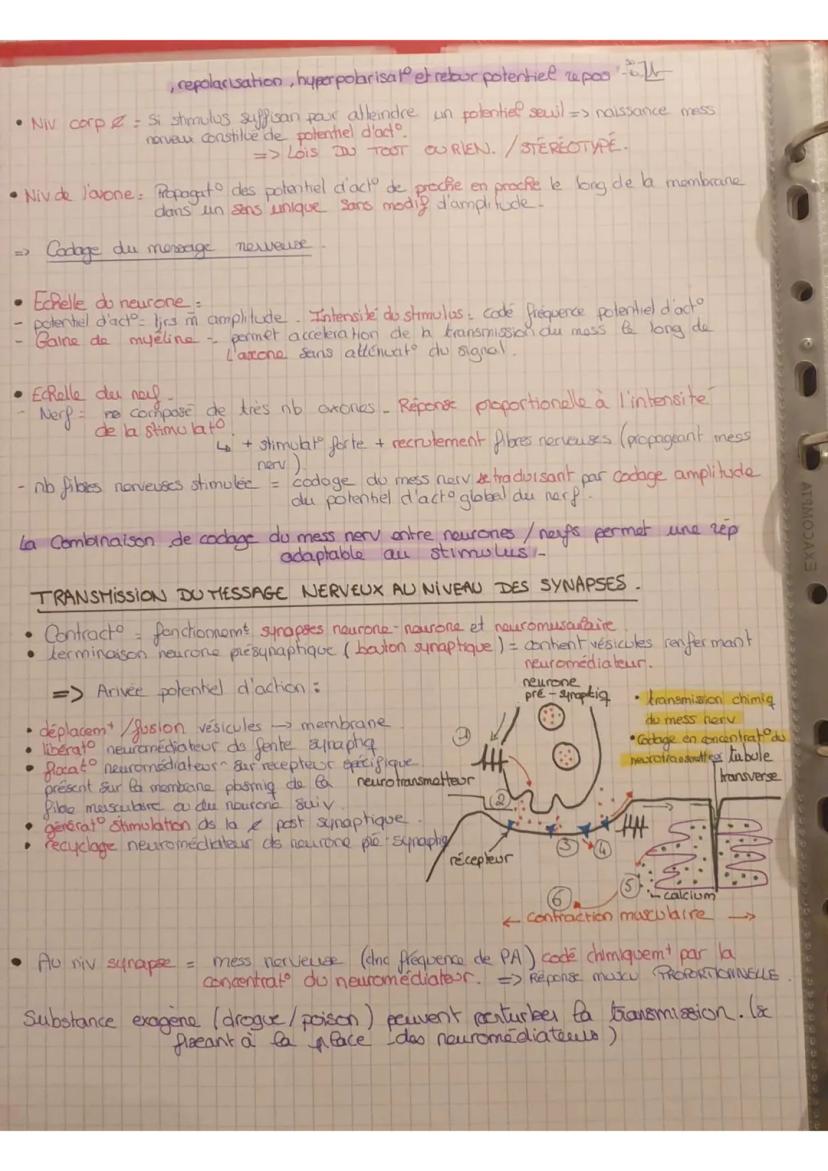 , repolarisation, hyperpolarisat° et retour potentiel repos
• Niv corp = Si stimulus suffisan pour atteindre un potentiel seuil => naissance mess
nerveux constitué de potentiel d'act°.
=> LOIS DU TOUT OU RIEN. / STÉRÉOTYPÉ.
• Niv de l'axone = Propagat° des potentiel d'act° de proche en proche le long de la membrane
dans un sens unique sans modif d'amplitude.
=> Codage du message nerveuse.
• Echelle du neurone =
- potentiel d'act° = tjrs m̂ amplitude. Intensité du stimulus = codé fréquence potentiel d'act°
- Gaine de myéline - permet acceleration de la transmission du mess le long de
l'axone sans atténuat° du signal.
• Echelle du nerf -
- Nerf = composé de très nb axones - Réponse proportionelle à l'intensité
de la stimulat°
↳ + stimulat° forte + recrutement fibres nerveuses (propageant mess
nerv)
- nb fibres nerveuses stimulée = codage du mess nerv se traduisant par codage amplitude
du potentiel d'act° global du nerf.
La Combinaison de codage du mess nerv entre neurones / nerfs permet une rép
adaptable au stimulus -
TRANSMISSION DU MESSAGE NERVEUX AU NIVEAU DES SYNAPSES.
• Contract° = fonctionnemt synapses neurone-neurone et neuromusculaire
• terminaison neurone présynaptique (bouton synaptique) = contient vésicules renfermant
neuromédiateur.
=> Arivée potentiel d'action :
• déplacemt / fusion vésicules → membrane
• libérat° neuromédiateur ds fente synaptiq
• fixat° neuromédiateur sur récepteur spécifique
présent sur la membrane plasmiq de la
fibre musculaire ou du neurone suiv.
• générat° stimulation ds la post synaptique.
• recyclage neuromédiateur ds neurone pré-synaptiq
neurone
pré-synaptiq
• transmission chimiq
du mess nerv
• Codage en concentrat° du
neurotransmetteur
tubule
transverse
neurotransmetteur
1
2
3
4
5
6
récepteur
calcium
← contraction musculaire →
• Au niv synapse = mess nerveuse (dnc fréquence de PA) codé chimiquemt par la
concentrat° du neuromédiateur. => Réponse muscu PROPORTIONNELLE.
Substance exogène (drogue / poison) peuvent perturber la transmission. (se
fixant à la place des neuromédiateurs)
EXACOMPTA